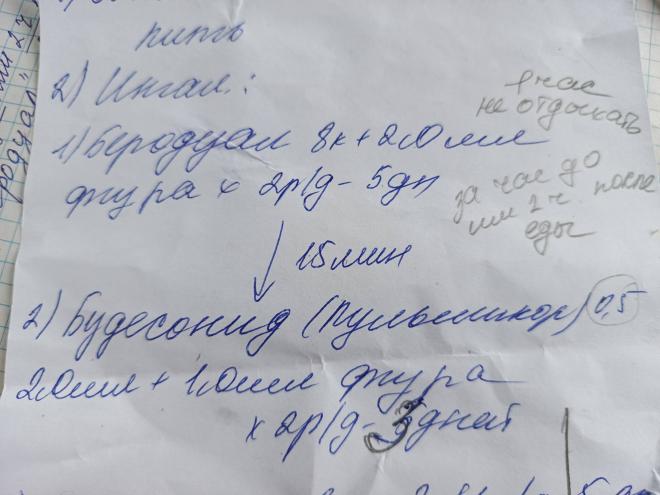 пить
2) Ингал.:
1 час
не отдыхать
1) Беродуал 8к + 2.0 мл
физ ра х 2р/д - 5дн
за час до
или 2 ч. после
еды
15 мин
2) Будесонид (Пульмикорт) 0,5
2.0 мл + 1.0 мл физ ра
х 2р/д - 3 дней